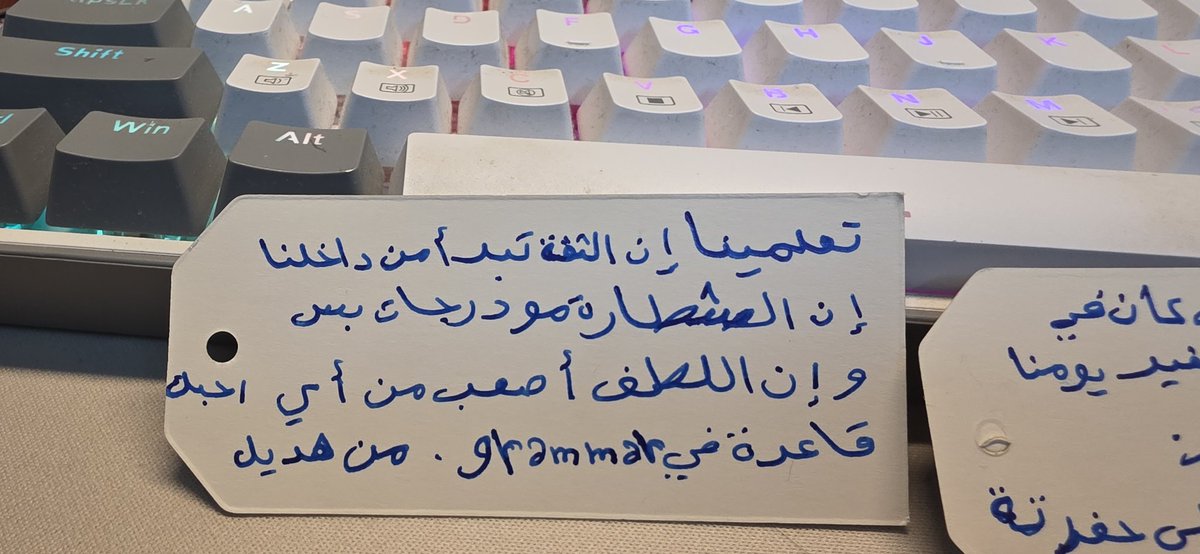 A S D F G H J K L
Shift Z X C V B N M
Win Alt
تعلمينا إن الثقة تبدأ من داخلنا
إن الشطارة مو درجات بس
و إن اللطف أصعب من أي احبك
قاعدة في grammar. من هديل
في
يومنا